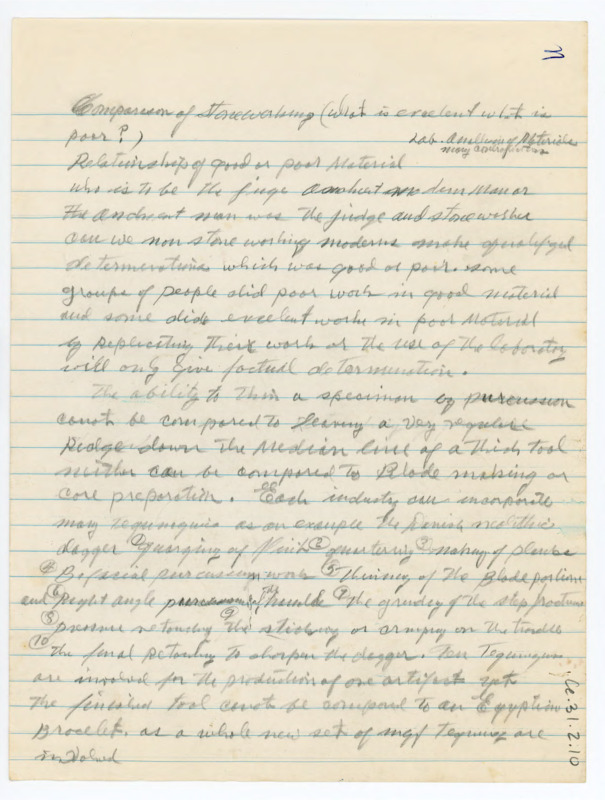 Comparison of stoneworking (what is excelent what is
poor?)
Lab. Analysis of Materials
many
Relationship of good or poor Material
who is to be the juge modern Man or
the man was the judge and stoneworker
can we non stone working moderns make
determinations which was good or poor. some
groups of people did poor work in good material
and some did excelent works in poor Material
by Replicating their work or the use of the laboratory
will only give factual determination.
The ability to thin a specimen by purcussion
canot be compared to leaving a very regular
Ridge down the Median line of a thick tool
neither can be compared to Blade making or
core preparation. Each industry can incorporate
many as an example the Danish neolithic
dagger ① of flint ② quartering ③ making of
④ Bifacial purcussion work ⑤ thining of the Blade portion
and ⑥ Right angle purcussion of the handle ⑦ the grinding of the step fractures
⑧ pressure retouching ⑨ the or on the handle
⑩ the final retouching to sharpen the dagger. Ten
are involved for the production of one artifact yet
the finished tool canot be compared to an Egyption
Bracelet. as a whole new set of are
involved
n
Cc.31.2.10